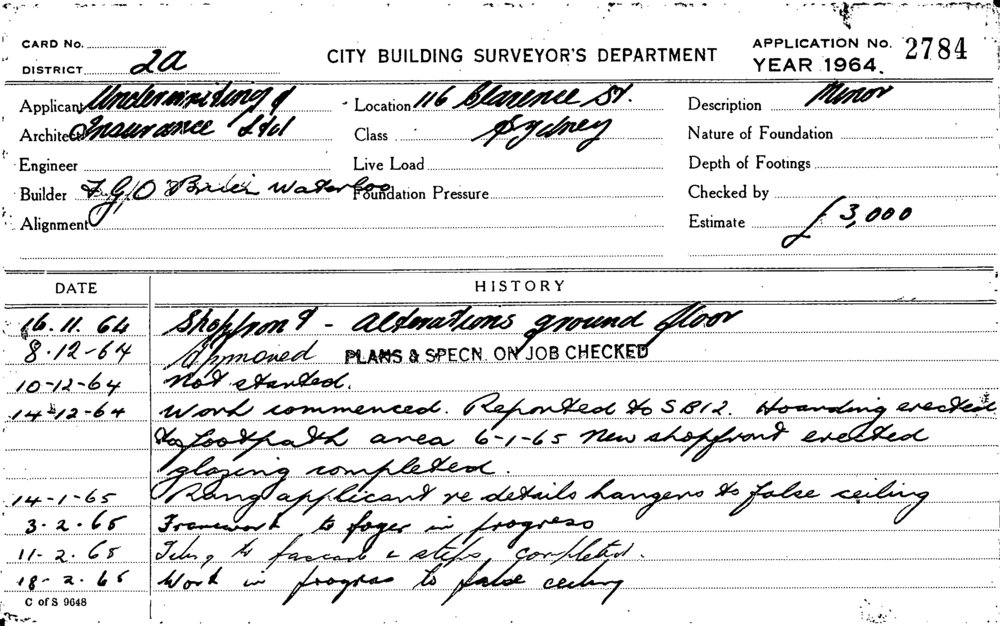 CARD No.
DISTRICT 2a
CITY BUILDING SURVEYOR'S DEPARTMENT
APPLICATION No. 2784
YEAR 1964.
Applicant Underwriting &
Architect Insurance Ltd
Engineer
Builder F.G. O'Brien Waterloo
Alignment
Location 116 Clarence St.
Class Sydney
Live Load
Foundation Pressure
Description Minor
Nature of Foundation
Depth of Footings
Checked by
Estimate £3,000
DATE HISTORY
16.11.64 Shopfront - Alterations ground floor
8.12-64 Approved PLANS & SPECN. ON JOB CHECKED
10-12-64 Not started.
14-12-64 Work commenced. Reported to SB12. Hoarding erected
to footpath area 6-1-65 New shopfront erected
glazing completed.
14-1-65 Rang applicant re details hangers to false ceiling
3.2.65 Framework to foyer in progress
11-2.65 Tiling to & steps, completed.
18-2.65 Work in progress to false ceiling
C of S 9648